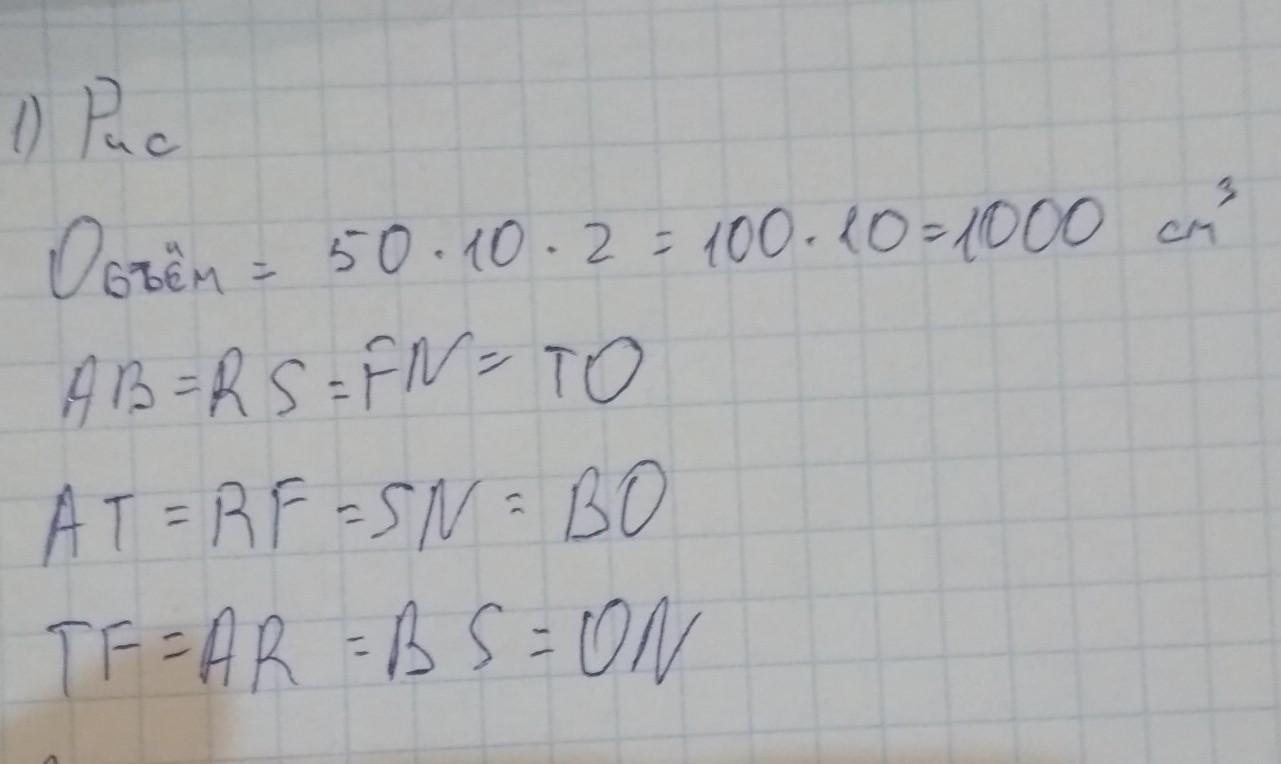 1) Рис
Объём = 50 · 10 · 2 = 100 · 10 = 1000 см³
AB = RS = FN = TO
AT = RF = SN = BO
TF = AR = BS = ON